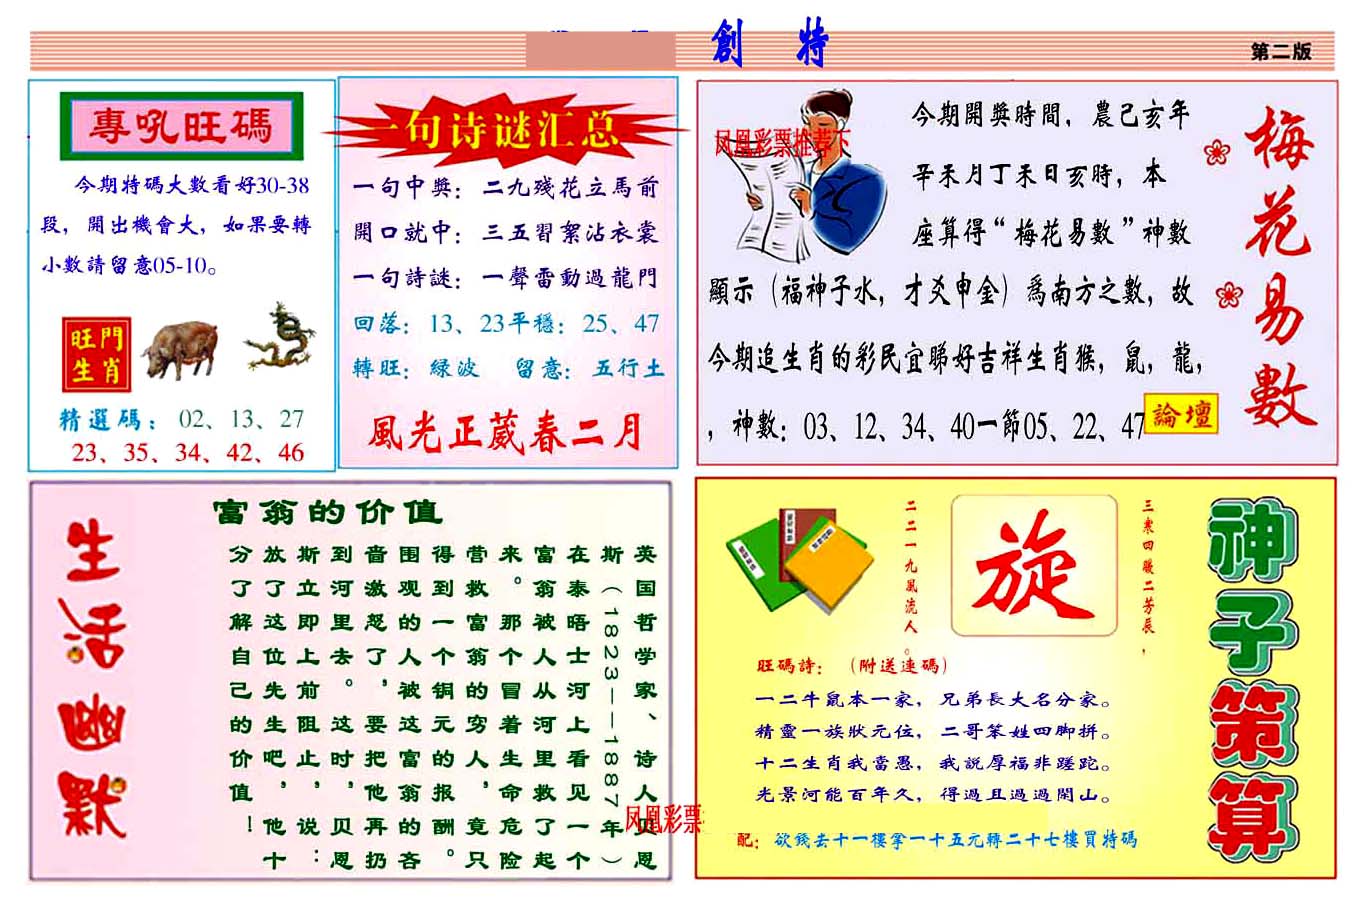 創 特
第二版
專吼旺碼
今期特碼大數看好30-38
段，開出機會大，如果要轉
小數請留意05-10。
旺門
生肖
精選碼：02、13、27
23、35、34、42、46
一句诗谜汇总
一句中獎：二九殘花立馬前
開口就中：三五習絮沾衣裳
一句詩謎：一聲雷動過龍門
回落：13、23平穩：25、47
轉旺：緑波 留意：五行土
風光正葳春二月
凤凰彩票推荐下
今期開獎時間，農己亥年
辛未月丁未日亥時，本
座算得“梅花易數”神數
顯示（福神子水，才爻申金）爲南方之數，故
今期追生肖的彩民宜睇好吉祥生肖猴，鼠，龍，
，神數：03、12、34、40一節05、22、47
論壇
梅花易數
生活幽默
富翁的价值
英国哲学家、诗人贝恩
斯（1823——1887年）
在泰晤士河上看见一个
富翁被人从河里救了起
来。那个冒着生命危险
营救富翁的穷人，竟只
得到一个铜元的报酬。
围观的人被这富翁的吝
啬激怒了，要把他再扔
到河里去。这时，贝恩
斯立即上前阻止，说：
放了这位先生吧，他十
分了解自己的价值！
凤凰彩票
三寒四暖二芳辰，
旋
二二一九風流人。
旺碼詩：（附送連碼）
一二牛鼠本一家，兄弟長大名分家。
精靈一族狀元位，二哥笨姓四脚拼。
十二生肖我當愚，我説厚福非蹉跎。
光景河能百年久，得過且過過関山。
配：欲錢去十一樓拿一十五元轉二十七樓買特碼
神子策算